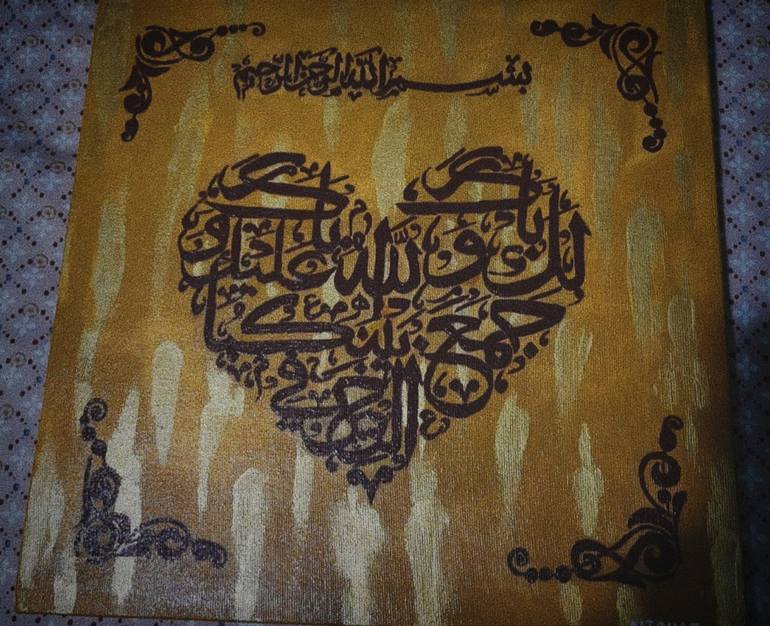 بسم الله الرحمن الرحيم
بارك الله لك وبارك عليك و
جمع بينكما
في الخير